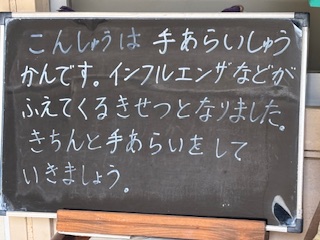 こんしゅうは 手あらいしゅう
かんです。インフルエンザなどが
ふえてくるきせつとなりました。
きちんと手あらいをして
いきましょう。